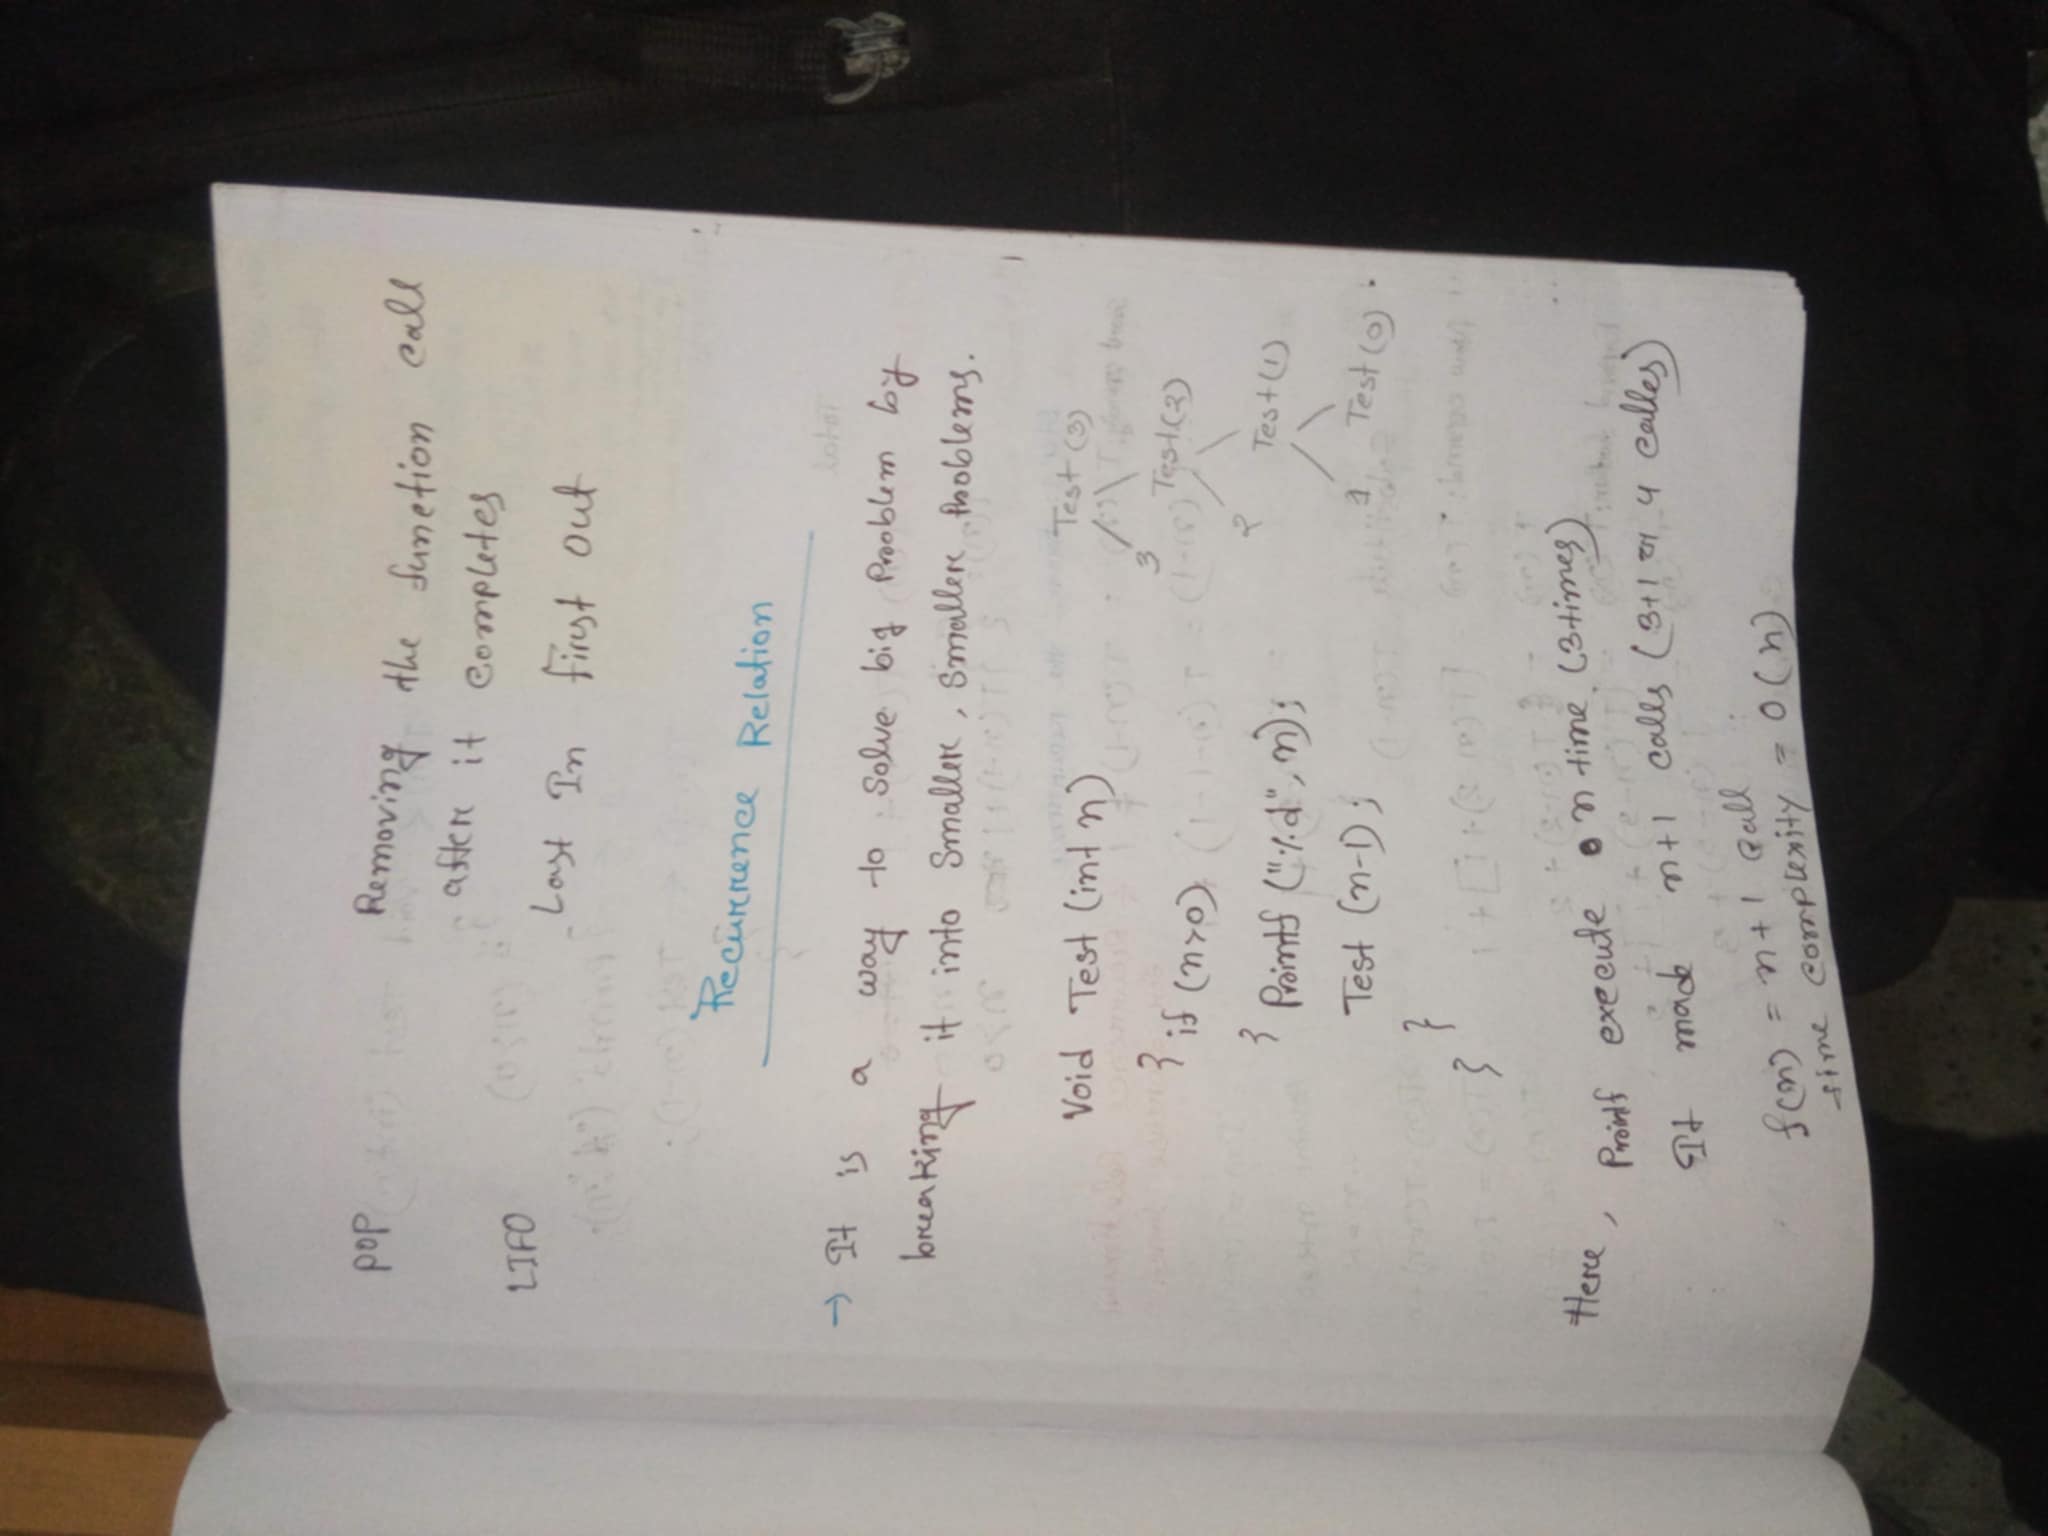 POP Removing the function call
after it completes
LIFO Last In First out
Recurrence Relation
→ It is a way to solve big Problem by
breaking it into smaller, smaller Problems.
Void Test (int n)
{ if (n>0)
{ Printf ("%d", n);
Test (n-1);
}
}
Test (3)
3 Test (2)
2 Test (1)
1 Test (0)
Here, Printf execute n time (3 times)
It made n+1 calls (3+1 या 4 calles)
f(n) = n+1 call
time complexity = O(n)